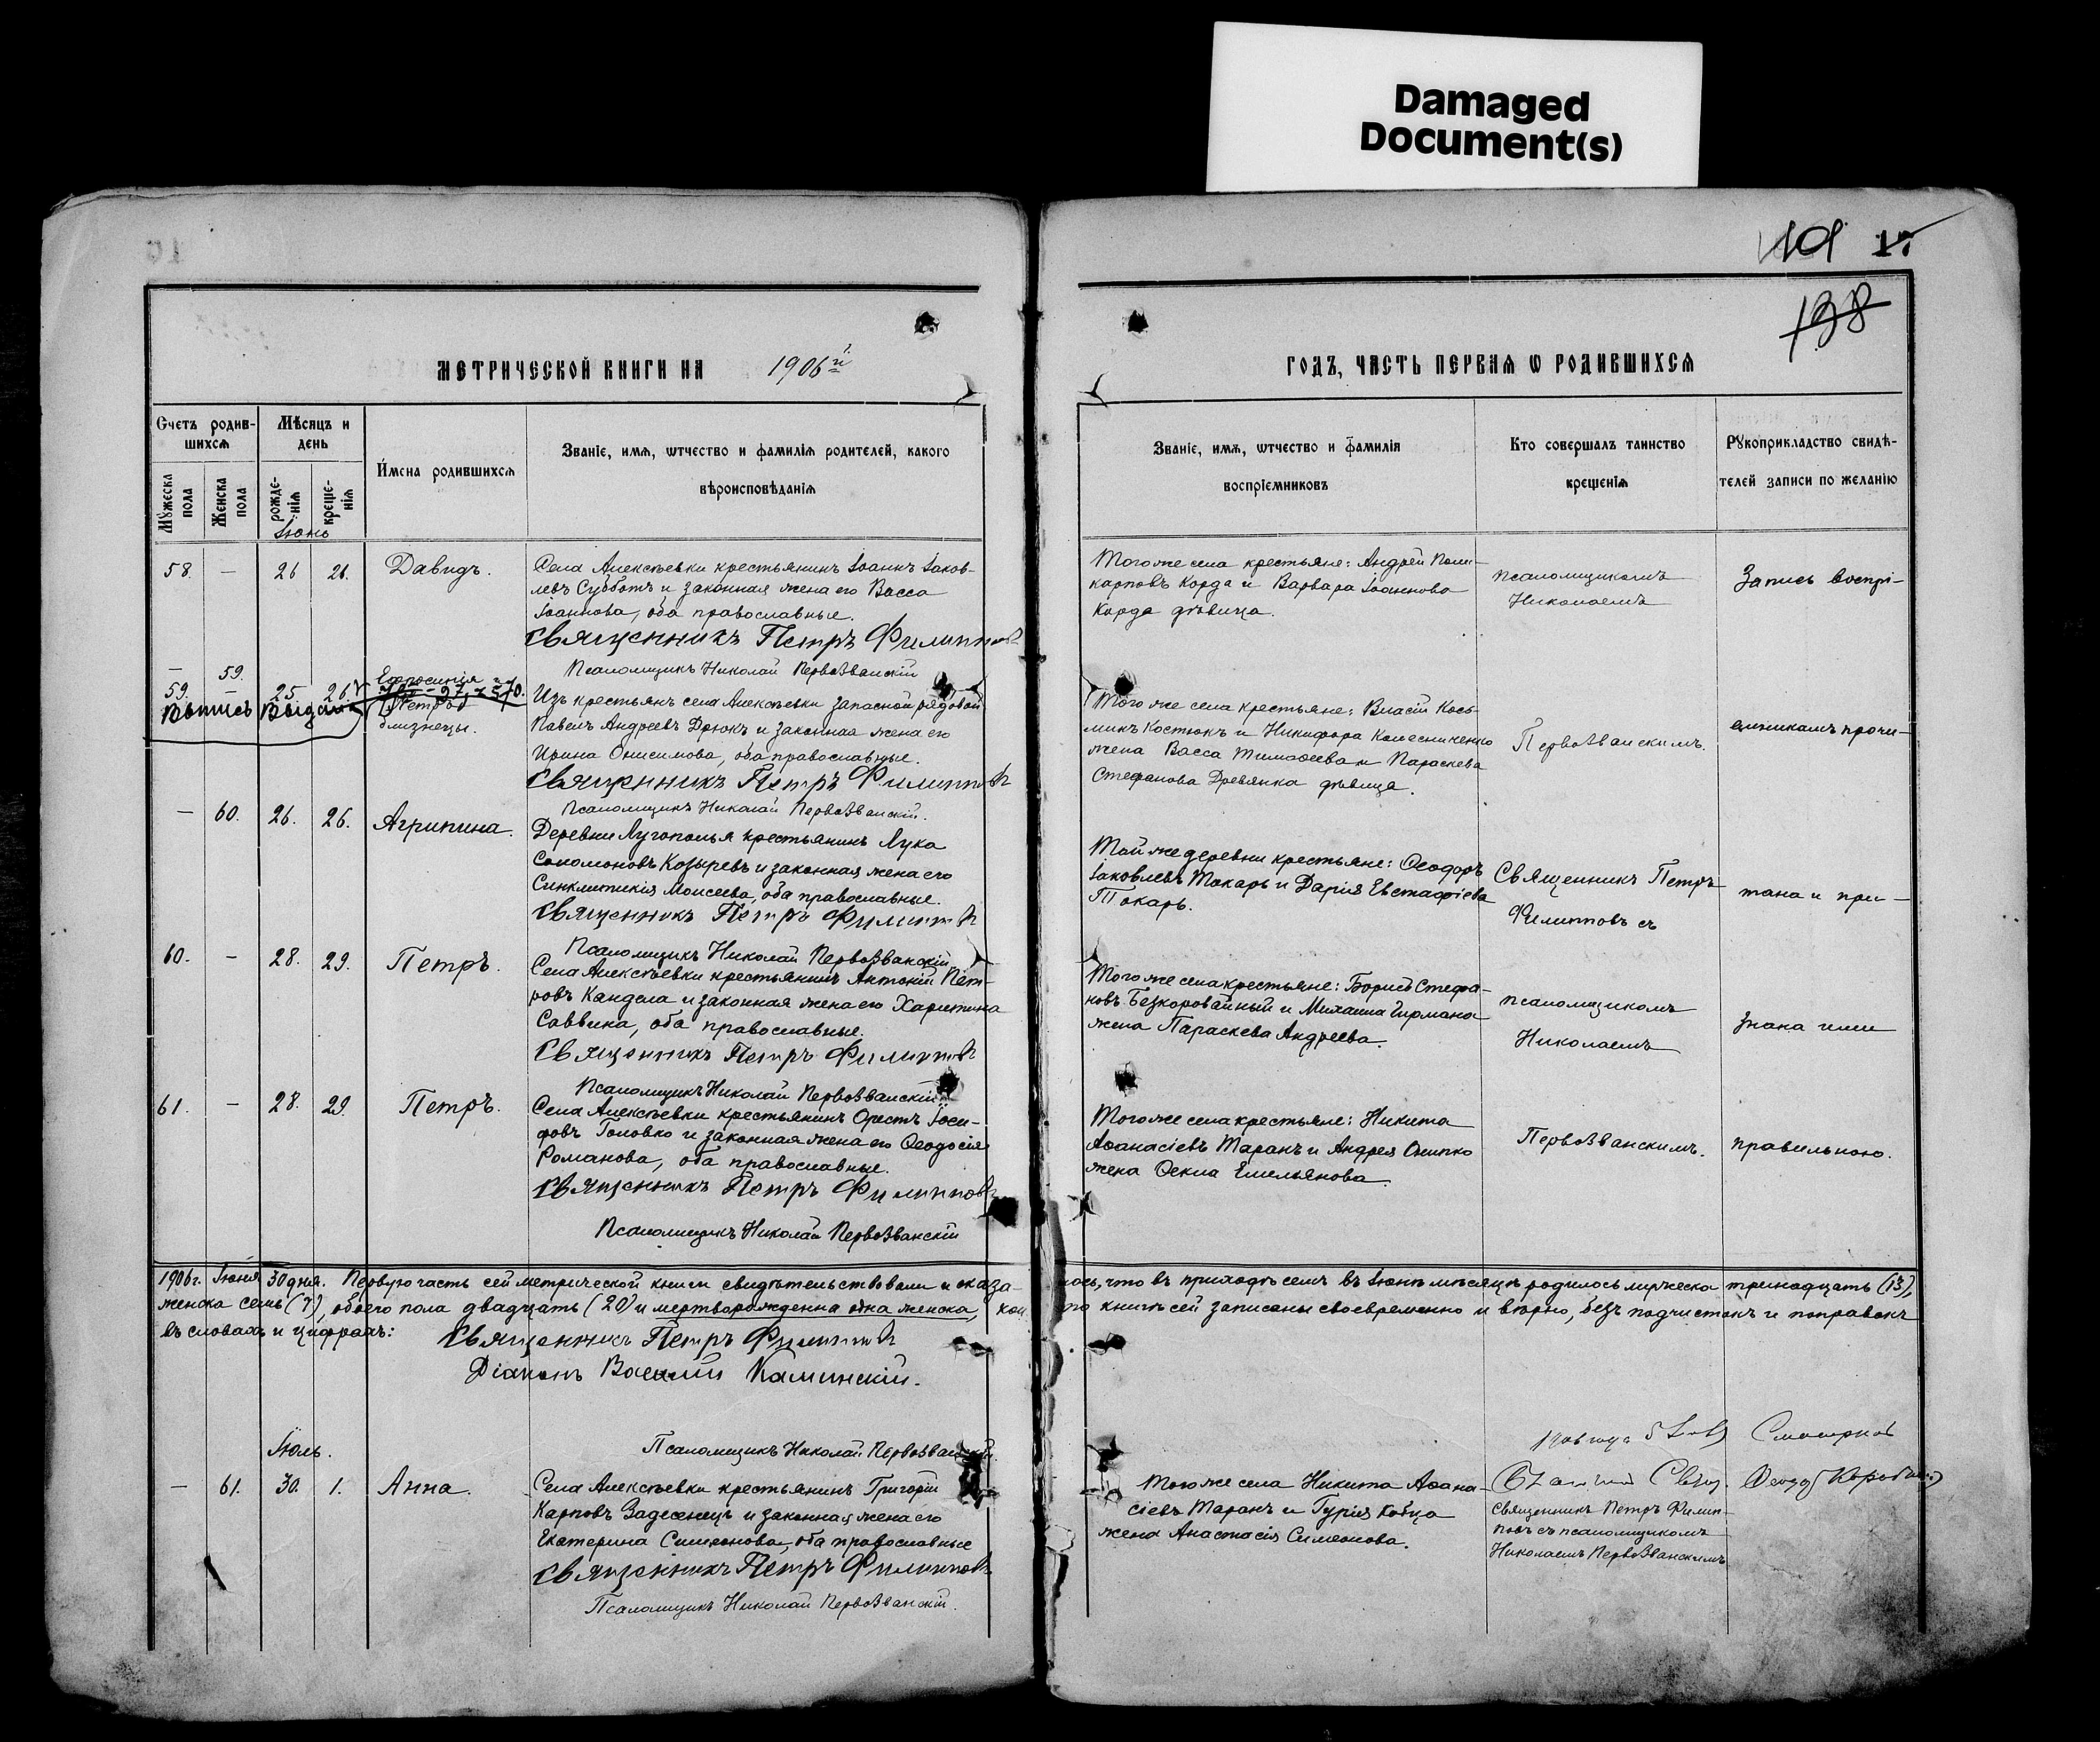 Damaged
Document(s)
101 17
138
МЕТРИЧЕСКОЙ КНИГИ НА 1906й
ГОДЪ, ЧАСТЬ ПЕРВАЯ Ѡ РОДИВШИХСѦ
Счетъ родив-
шихсѧ
Мѣсѧцъ и
день
Имена родившихсѧ
Званіе, имѧ, ѡтчество и фамиліѧ родителей, какого
вѣроисповѣданіѧ
Мꙋжеска
пола
Женска
пола
рожде-
ніѧ
креще-
ніѧ
Званіе, имѧ, ѡтчество и фамиліѧ
воспріемниковъ
Кто совершалъ таинство
крещеніѧ
Рꙋкоприкладство свидѣ-
телей записи по желанію
Іюнь
58. — 26 26. Давидъ.
Села Алексѣевки крестьянинъ Іоаннъ Іаков-
левъ Субботъ и законная жена его Васса
Іоаннова, оба православные.
Священникъ Петръ Филипповъ
Псаломщикъ Николай Первозванскій
Того же села крестьяне: Андрей Поли-
карповъ Корда и Варвара Іоаннова
Корда дѣвица.
псаломщикомъ
Николаемъ
Запись воспрі-
— 59.
59. — 25 26. Ефросинія и
Петръ
близнецы.
Выпись выдана
Изъ крестьянъ села Алексѣевки запасной рядовой
Павелъ Андреевъ Дрюкъ и законная жена его
Ирина Онисимова, оба православные.
Священникъ Петръ Филипповъ
Псаломщикъ Николай Первозванскій.
Того же села крестьяне: Власій Кось-
микъ Костюкъ и Никифора Колесниченко
жена Васса Тимофеева и Параскева
Стефанова Древянка дѣвица.
Первозванскимъ.
емникамъ прочи-
— 60. 26. 26. Агрипина.
Деревни Лугополья крестьянинъ Лука
Соломоновъ Козыревъ и законная жена его
Синклитикія Моисеева, оба православные.
Священникъ Петръ Филипповъ
Псаломщикъ Николай Первозванскій
Той же деревни крестьяне: Ѳеодоръ
Іаковлевъ Токарь и Дарія Евстафіева
Токарь.
Священникъ Петръ
Филипповъ съ
тана и при-
60. — 28. 29. Петръ.
Села Алексѣевки крестьянинъ Антоній Пет-
ровъ Кандела и законная жена его Харитина
Саввина, оба православные.
Священникъ Петръ Филипповъ
Псаломщикъ Николай Первозванскій
Того же села крестьяне: Борисъ Стефа-
новъ Безкоровайный и Михаила Гирмана
жена Параскева Андреева.
псаломщикомъ
Николаемъ
знана ими
61. — 28. 29. Петръ.
Села Алексѣевки крестьянинъ Орестъ Іоси-
фовъ Головко и законная жена его Ѳеодосія
Романова, оба православные.
Священникъ Петръ Филипповъ
Псаломщикъ Николай Первозванскій
Того же села крестьяне: Никита
Аѳанасіевъ Таранъ и Андрея Онипко
жена Ѳекла Емельянова.
Первозванскимъ.
правильною.
1906 г. Іюня 30 дня. Первую часть сей метрической книги свидѣтельствовали и оказа-
лось, что въ приходѣ семъ въ Іюнѣ мѣсяцѣ родилось мужеска тринадцать (13),
женска семь (7), обоего пола двадцать (20) и мертворожденна одна женска, кои
по книгѣ сей записаны своевременно и вѣрно, безъ подчистокъ и поправокъ
въ словахъ и цифрахъ: Священникъ Петръ Филипповъ
Діаконъ Василій Каминскій.
Псаломщикъ Николай Первозванскій.
Іюль.
— 61. 30. 1. Анна.
Села Алексѣевки крестьянинъ Григорій
Карповъ Задесенецъ и законная жена его
Екатерина Симеонова, оба православные
Священникъ Петръ Филипповъ
Псаломщикъ Николай Первозванскій.
Того же села Никита Аѳана-
сіевъ Таранъ и Гурія Кобца
жена Анастасія Симеонова.
1906 года
Смотрѣлъ
Священникъ Петръ Филип-
повъ съ псаломщикомъ
Николаемъ Первозванскимъ